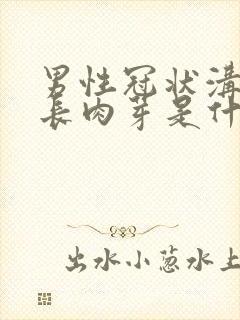 男性冠状溝
長肉芽是什
出水小葱水上